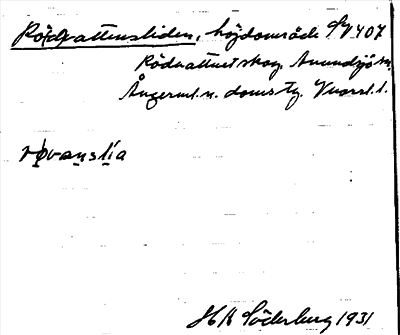 Rö(d)vattensliden, höjdområde SV 407
Rödvattnet skog. Anundsjö sn.
Ångerml. n. doms tg. Vnorrl. l.
røvanslia
HR Söderberg 1931